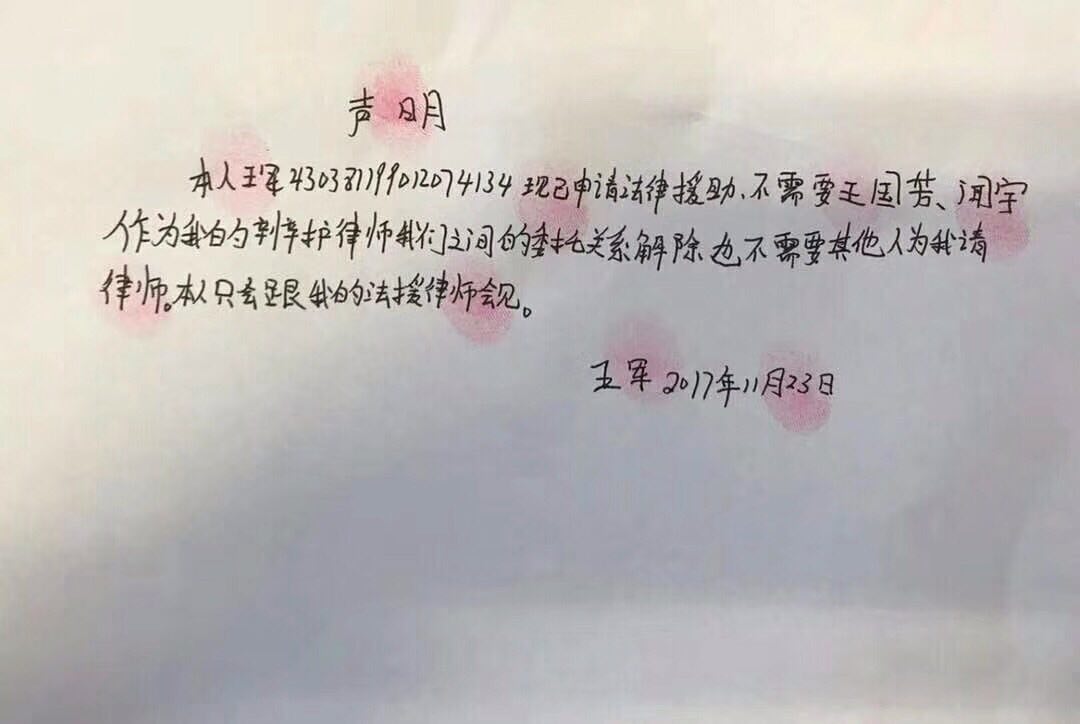 声明
本人王军430381199012074134现已申请法律援助、不需要王国芳、闻宇
作为我的辩护律师我们之间的委托关系解除也不需要其他人为我请
律师。本人只会跟我的法援律师会见。
王军 2017年11月23日